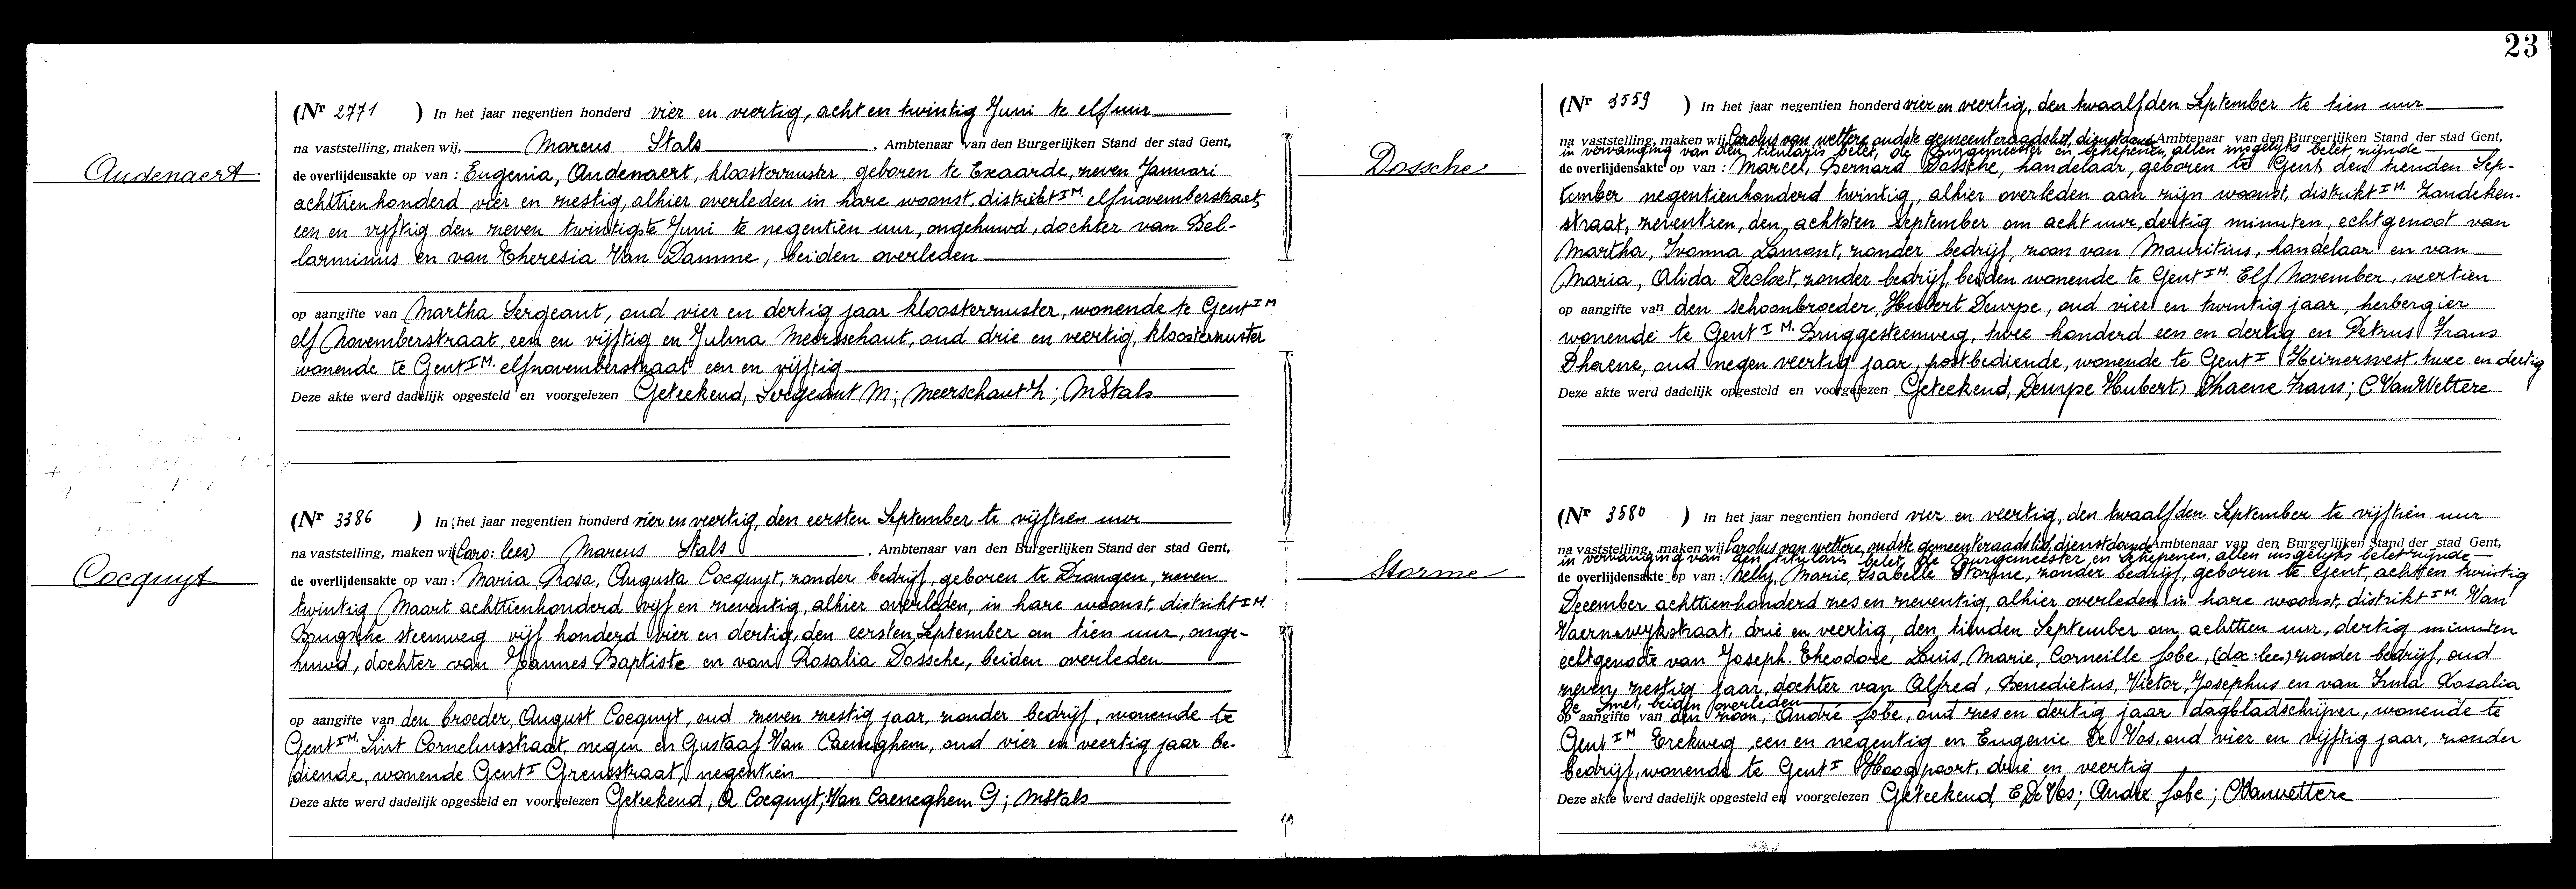 23
Audenaert
(Nr 2771 ) In het jaar negentien honderd vier en veertig, acht en twintig Juni te elf uur
na vaststelling, maken wij, Marcus Stals , Ambtenaar van den Burgerlijken Stand der stad Gent,
de overlijdensakte op van : Eugenia, Audenaert, kloosterzuster, geboren te Exaarde, zeven Januari
achttienhonderd vier en zestig, alhier overleden in hare woonst, distrikt I M. elfnovemberstraat,
een en vijftig den zeven twintigste Juni te negentien uur, ongehuwd, dochter van Bel-
larminus en van Theresia Van Damme, beiden overleden
op aangifte van Martha Sergeant, oud vier en dertig jaar kloosterzuster, wonende te Gent I M
elf Novemberstraat, een en vijftig en Julma Meersschaut, oud drie en veertig kloosterzuster
wonende te Gent I M. elfnovemberstraat een en vijftig
Deze akte werd dadelijk opgesteld en voorgelezen Geteekend, Sergeant M; Meerschaut ; MStals
Cocquyt
(Nr 3386 ) In het jaar negentien honderd vier en veertig, den eersten September te vijftien uur
na vaststelling, maken wij (Caro: lees) Marcus Stals , Ambtenaar van den Burgerlijken Stand der stad Gent,
de overlijdensakte op van : Maria, Rosa, Augusta Cocquyt, zonder bedrijf, geboren te Drongen, zeven
twintig Maart achttienhonderd vijf en zeventig, alhier overleden, in hare woonst, distrikt I M.
Brugsche steenweg vijf honderd vier en dertig, den eersten September om tien uur, onge-
huwd, dochter van Joannes Baptiste en van Rosalia Dossche, beiden overleden
op aangifte van den broeder, August Cocquyt, oud zeven zestig jaar, zonder bedrijf, wonende te
Gent I M. Sint Corneliusstraat, negen en Gustaaf Van Caeneghem, oud vier en veertig jaar be-
diende, wonende Gent I Grensstraat, negentien
Deze akte werd dadelijk opgesteld en voorgelezen Geteekend; A Cocquyt; Van Caeneghem G; MStals
Dossche
(Nr 3559 ) In het jaar negentien honderd vier en veertig, den twaalfden September te tien uur
na vaststelling, maken wij Carolus van wettere, oudste gemeenteraadslid, dienstdoend Ambtenaar van den Burgerlijken Stand der stad Gent,
in vervanging van den titularis belet, de Burgemeester en Schepenen, allen insgelijks belet zijnde
de overlijdensakte op van : Marcel, Bernard Dossche, handelaar, geboren te Gent den tienden Sep-
tember negentienhonderd twintig, alhier overleden aan zijn woonst, distrikt I M. Zandeken-
straat, zeventien, den achtsten September om acht uur, dertig minuten, echtgenoot van
Martha, Ivonna Lamont, zonder bedrijf, zoon van Mauritius, handelaar en van
Maria, Alida Decloet, zonder bedrijf, beiden wonende te Gent I M. Elf November, veertien
op aangifte van den schoonbroeder, Hubert Deurpe, oud vier en twintig jaar, herbergier
wonende te Gent I M. Bruggesteenweg, twee honderd een en dertig en Petrus Frans
Dhaene, oud negen veertig jaar, postbediende, wonende te Gent I Heirnersvest. twee en dertig
Deze akte werd dadelijk opgesteld en voorgelezen Geteekend, Deurpe Hubert; Dhaene Frans; C. Van Wettere
Storme
(Nr 3580 ) In het jaar negentien honderd vier en veertig, den twaalfden September te vijftien uur
na vaststelling, maken wij Carolus van wettere, oudste gemeenteraadslid, dienstdoende Ambtenaar van den Burgerlijken Stand der stad Gent,
in vervanging van den titularis belet, de Burgemeester en Schepenen, allen insgelijks belet zijnde
de overlijdensakte op van : Nelly, Marie, Isabelle Storme, zonder bedrijf, geboren te Gent, acht en twintig
December achttienhonderd zes en zeventig, alhier overleden in hare woonst, distrikt I M. Van
Vaernewykstraat, drie en veertig, den tienden September om achttien uur, dertig minuten
echtgenoote van Joseph. Theodore Louis, Marie, Corneille Jobe, (dox: lees) zonder bedrijf, oud
zeven zestig jaar, dochter van Alfred, Benedictus, Victor, Josephus en van Irma Rosalia
De Smet, beiden overleden
op aangifte van den zoon, André Jobe, oud zes en dertig jaar dagbladschrijver, wonende te
Gent I M Erekweg een en negentig en Eugenie De Vos, oud vier en vijftig jaar, zonder
bedrijf, wonende te Gent I Hoogpoort, drie en veertig
Deze akte werd dadelijk opgesteld en voorgelezen Geteekend, E De Vos; André Jobe; CVanwettere